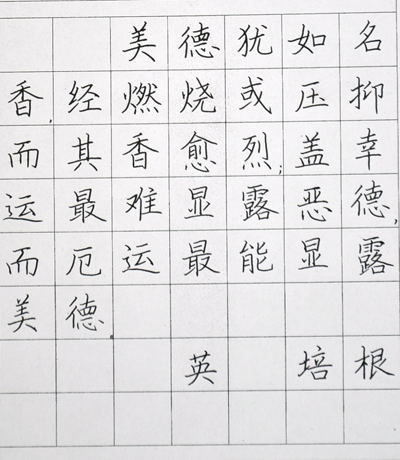 美德犹如名
香,经燃烧或压抑
而其香愈烈;盖幸
运最难显露恶德,
而厄运最能显露
美德.
英 培根